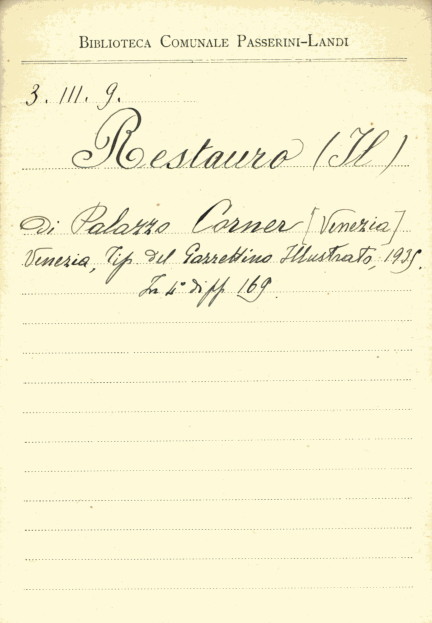 BIBLIOTECA COMUNALE PASSERINI-LANDI
3. III. 9.
Restauro (Il)
di Palazzo Corner [Venezia]
Venezia, Tip. del Gazzettino Illustrato, 1935.
In 4° di pp 169.